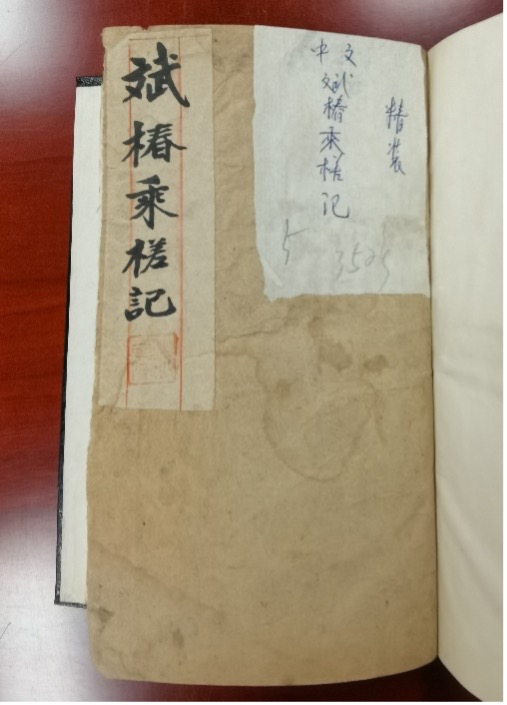 斌椿乘槎記
中文
斌椿乘槎记
精装
5
3525